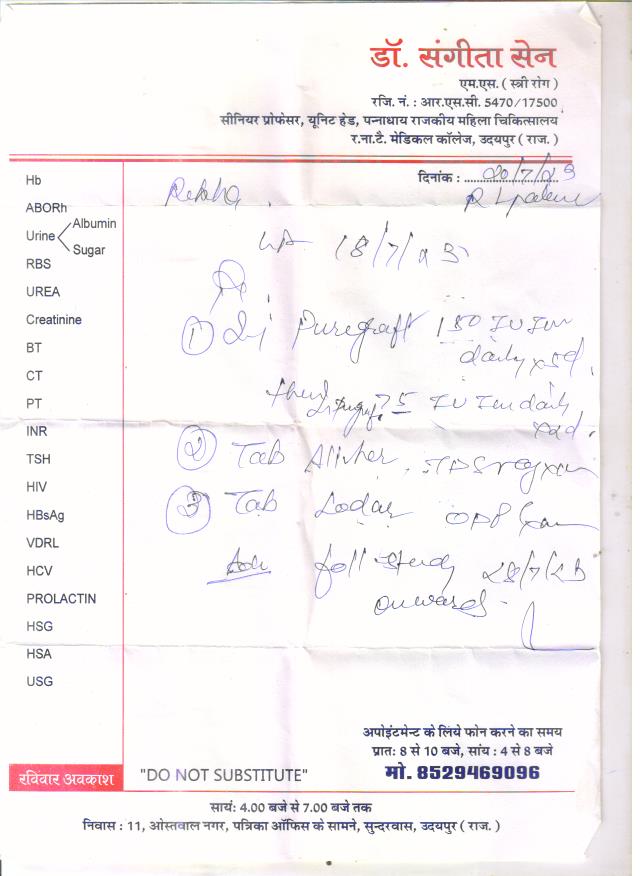 डॉ. संगीता सेन
एम.एस. ( स्त्री रोग )
रजि. नं. : आर.एस.सी. 5470/17500
सीनियर प्रोफेसर, यूनिट हेड, पन्नाधाय राजकीय महिला चिकित्सालय
र.ना.टै. मेडिकल कॉलेज, उदयपुर ( राज. )
दिनांक : 20/7/23
Rekha
18/7/23
Hb
ABORh
Urine Albumin
Sugar
RBS
UREA
Creatinine
BT
CT
PT
INR
TSH
HIV
HBsAg
VDRL
HCV
PROLACTIN
HSG
HSA
USG
① Inj Puregraft 150 IU Im
daily x 5d.
then 75 IU Im daily
② Tab
③ Tab
Adv foll study 28/7/23
onwards
अपोइंटमेन्ट के लिये फोन करने का समय
प्रात: 8 से 10 बजे, सांय : 4 से 8 बजे
मो. 8529469096
रविवार अवकाश
"DO NOT SUBSTITUTE"
सायं: 4.00 बजे से 7.00 बजे तक
निवास : 11, ओस्तवाल नगर, पत्रिका ऑफिस के सामने, सुन्दरवास, उदयपुर ( राज. )